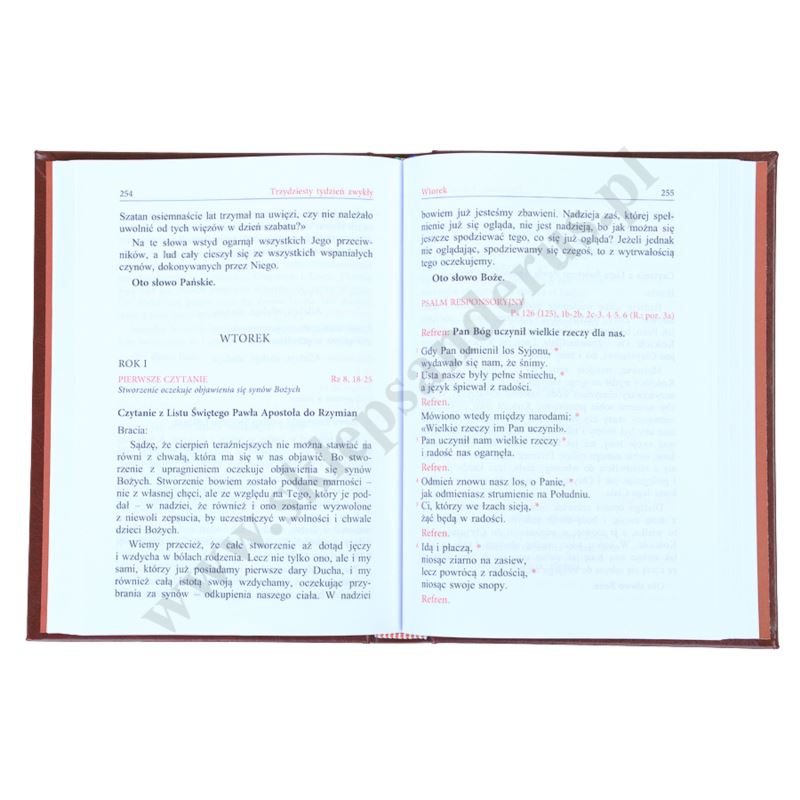 254 Trzydziesty tydzień zwykły
Szatan osiemnaście lat trzymał na uwięzi, czy nie należało
uwolnić od tych więzów w dzień szabatu?»
Na te słowa wstyd ogarnął wszystkich Jego przeciw-
ników, a lud cały cieszył się ze wszystkich wspaniałych
czynów, dokonywanych przez Niego.
Oto słowo Pańskie.
WTOREK
ROK I
PIERWSZE CZYTANIE Rz 8, 18-25
Stworzenie oczekuje objawienia się synów Bożych
Czytanie z Listu Świętego Pawła Apostoła do Rzymian
Bracia:
Sądzę, że cierpień teraźniejszych nie można stawiać na
równi z chwałą, która ma się w nas objawić. Bo stwo-
rzenie z upragnieniem oczekuje objawienia się synów
Bożych. Stworzenie bowiem zostało poddane marności –
nie z własnej chęci, ale ze względu na Tego, który je pod-
dał – w nadziei, że również i ono zostanie wyzwolone
z niewoli zepsucia, by uczestniczyć w wolności i chwale
dzieci Bożych.
Wiemy przecież, że całe stworzenie aż dotąd jęczy
i wzdycha w bólach rodzenia. Lecz nie tylko ono, ale i my
sami, którzy już posiadamy pierwsze dary Ducha, i my
również całą istotą swoją wzdychamy, oczekując przy-
brania za synów – odkupienia naszego ciała. W nadziei
Wtorek 255
bowiem już jesteśmy zbawieni. Nadzieja zaś, której speł-
nienie już się ogląda, nie jest nadzieją, bo jak można się
jeszcze spodziewać tego, co się już ogląda? Jeżeli jednak
nie oglądając, spodziewamy się czegoś, to z wytrwałością
tego oczekujemy.
Oto słowo Boże.
PSALM RESPONSORYJNY
Ps 126 (125), 1b-2b. 2c-3. 4-5. 6 (R.: por. 3a)
Refren: Pan Bóg uczynił wielkie rzeczy dla nas.
Gdy Pan odmienił los Syjonu, *
wydawało się nam, że śnimy.
Usta nasze były pełne śmiechu, *
a język śpiewał z radości.
Refren.
Mówiono wtedy między narodami: *
«Wielkie rzeczy im Pan uczynił».
3 Pan uczynił nam wielkie rzeczy *
i radość nas ogarnęła.
Refren.
4 Odmień znowu nasz los, o Panie, *
jak odmieniasz strumienie na Południu.
5 Ci, którzy we łzach sieją, *
żąć będą w radości.
Refren.
6 Idą i płaczą, *
niosąc ziarno na zasiew,
lecz powrócą z radością, *
niosąc swoje snopy.
Refren.
www.sklepsanderus.pl